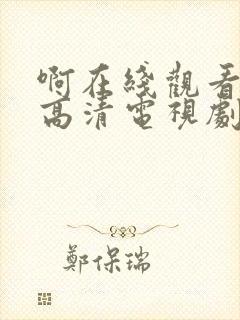 啊在綫觀看
高清電視劇
鄭保瑞